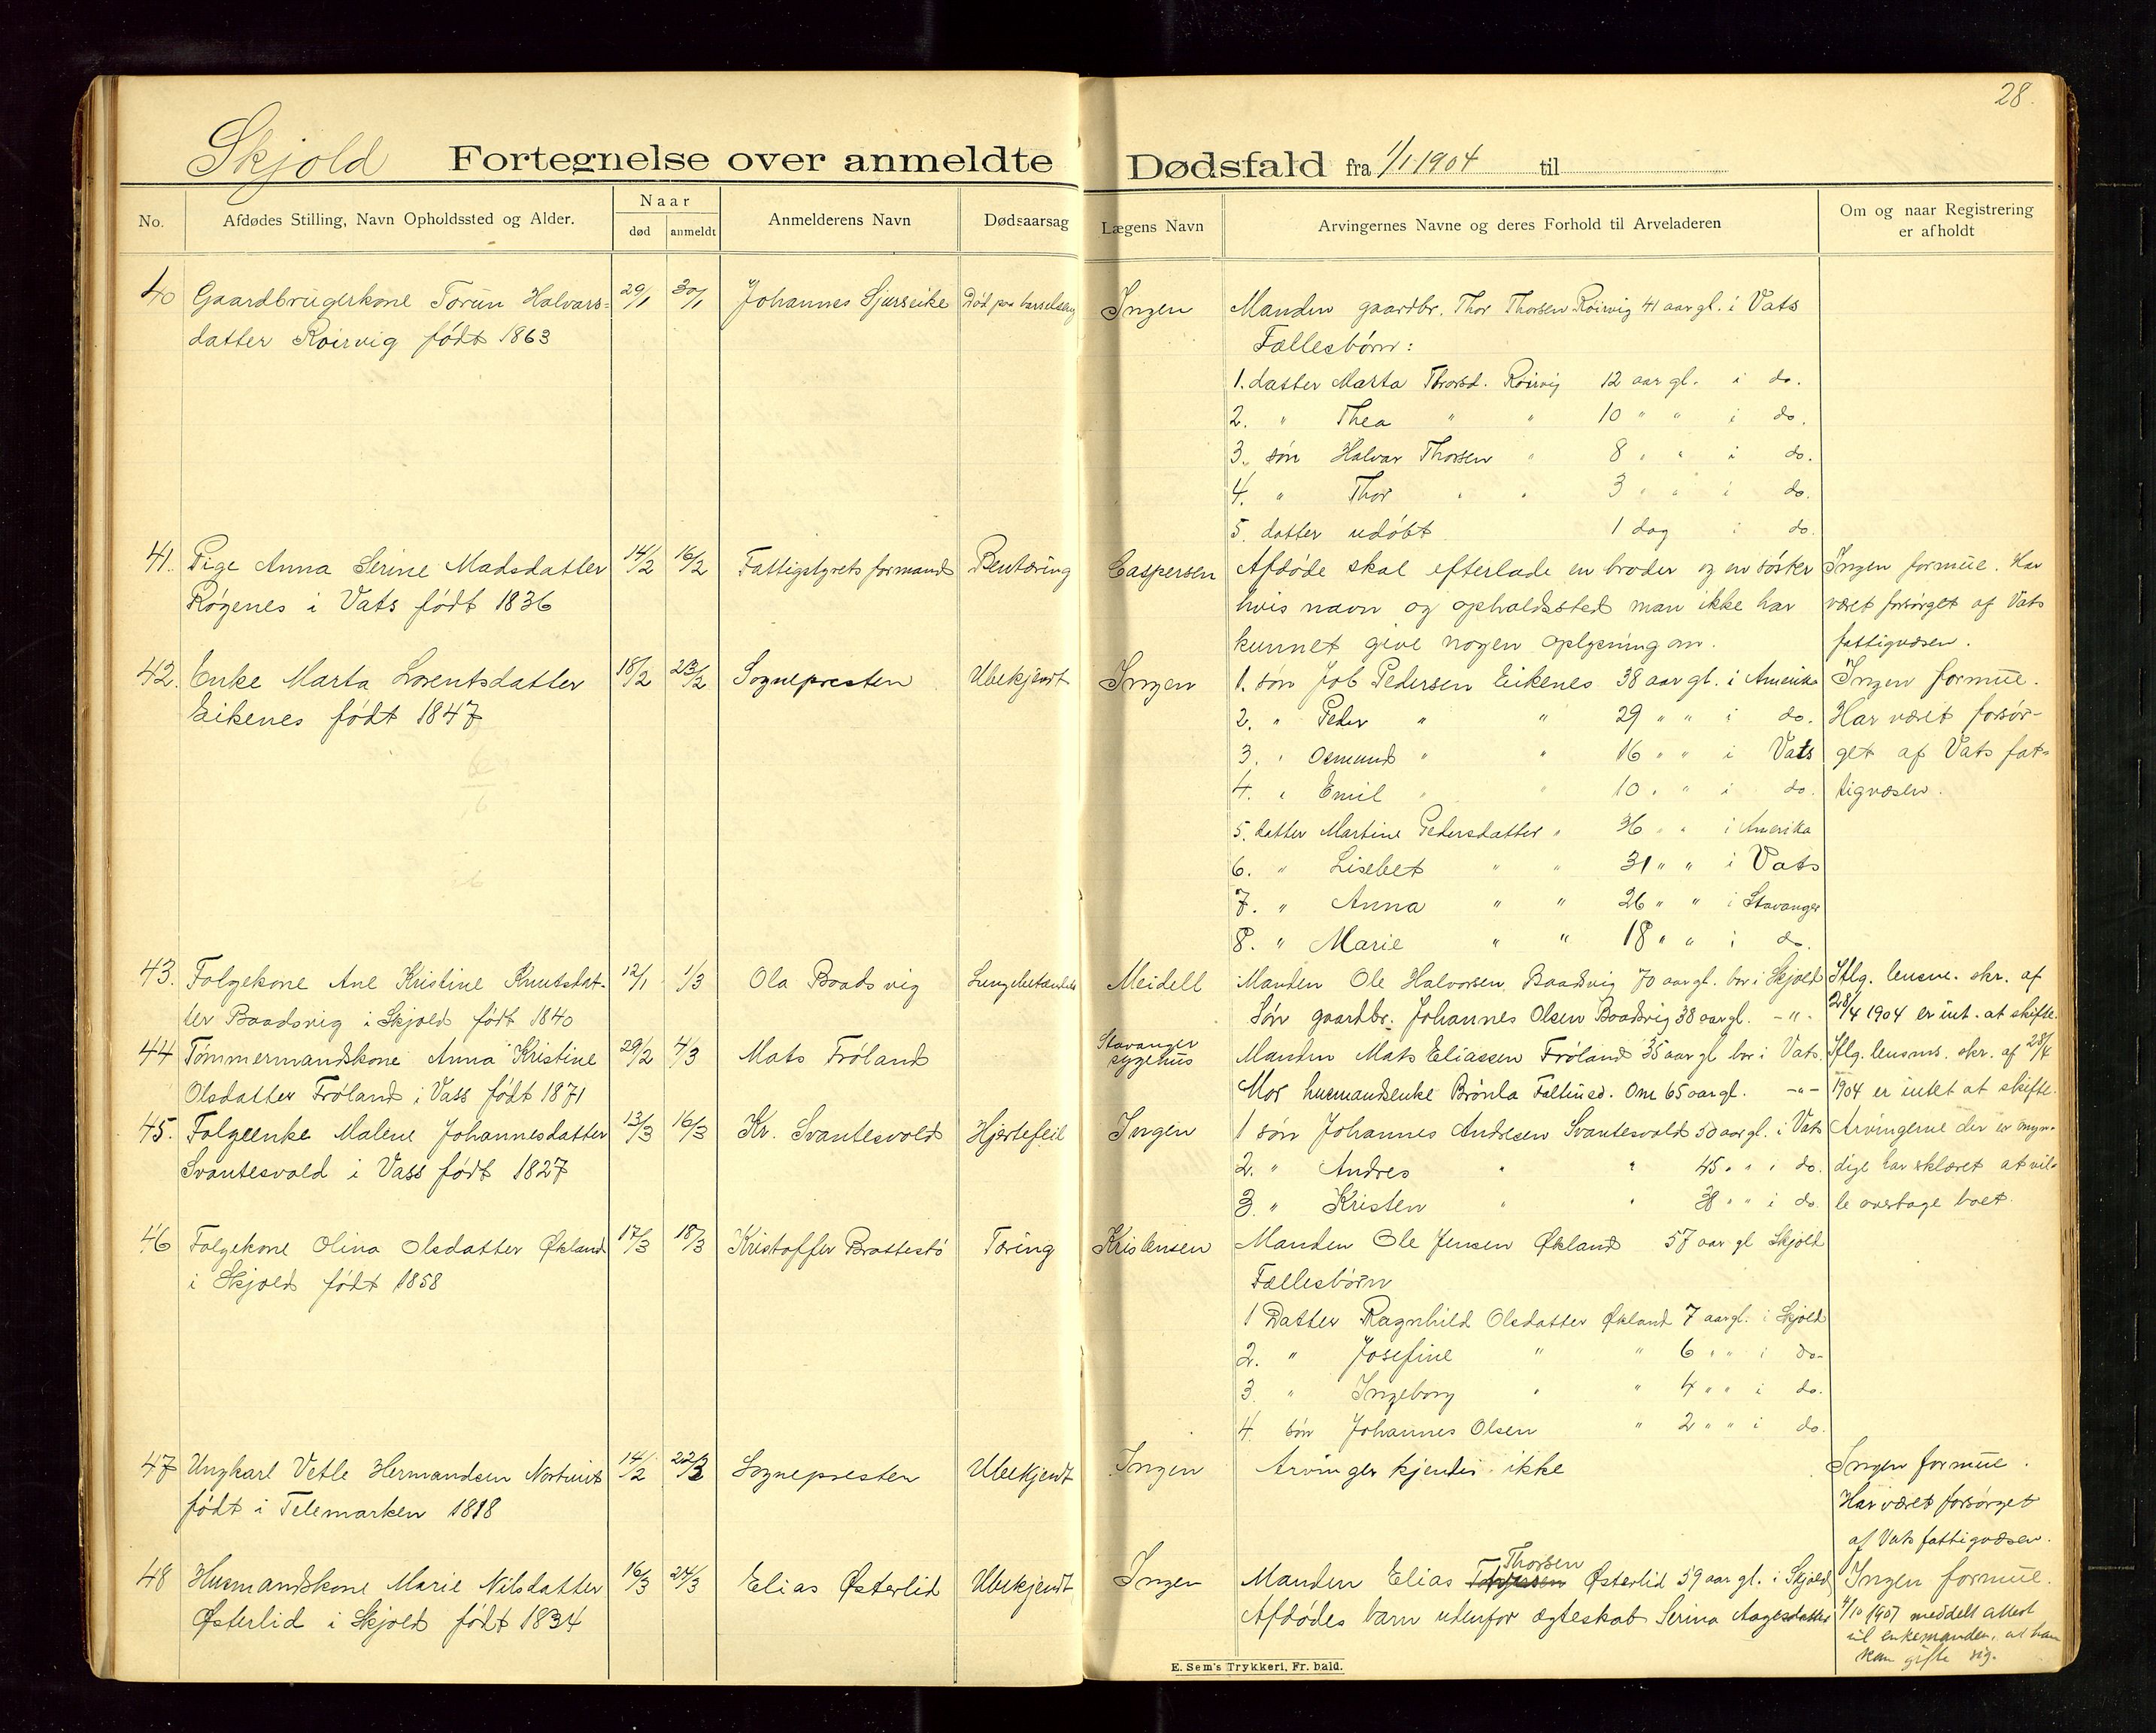 28.
Skjold Fortegnelse over anmeldte Dødsfald fra 1/1 1904 til
No. Afdødes Stilling, Navn Opholdssted og Alder. Naar død anmeldt Anmelderens Navn Dødsaarsag Lægens Navn Arvingernes Navne og deres Forhold til Arveladeren Om og naar Registrering er afholdt
40 Gaardbrugerkone Torun Halvars- 29/1 30/1 Johannes Gjerseike Død paa barselseng Ingen Manden gaardbr. Thor Thorsen Røirvig 41 aar gl. i Vats
datter Røirvig født 1863 Fællesbørn:
1. datter Marta Thorsd. Røirvig 12 aar gl. i do.
2. " Thea " " 10 " " i do.
3. søn Halvar Thorsen " 8 " " i do.
4. " Thor " " 3 " " i do.
5. datter udøbt 1 dag i do.
41. Pige Anna Serine Madsdatter 14/2 16/2 Fattigstyrets formand Bentæring Caspersen Afdøde skal efterlade en broder og en søster Ingen formue. Har
Røgenes i Vats født 1836 hvis navn og opholdssted man ikke har været forsørget af Vats
kunnet give nogen oplysning om. fattigvæsen.
42. Enke Marta Lorentsdatter 18/2 23/2 Sognepresten Ubekjendt Ingen 1. søn Job Pedersen Eikenes 38 aar gl. i Amerika Ingen formue.
Eikenes født 1847 2. " Peder " " 29 " " i do. Har været forsør-
3. " Osmund " " 16 " " i Vats get af Vats fat-
4. " Emil " " 10 " " i do. tigvæsen.
5. datter Martine Pedersdatter " 36 " " i Amerika
6. " Lisebet " " 31 " " i Vats
7. " Anna " " 26 " " i Stavanger
8. " Marie " " 18 " " i do.
43. Folgekone Ane Kristine Knutsdat- 12/1 1/3 Ola Baadsvig Lungebetændelse Meidell Manden Ole Halvorsen Baadsvig 70 aar gl. bor i Skjold Iflg. lensm. skr. af
ter Baadsvig i Skjold født 1840 Søn gaardbr. Johannes Olsen Baadsvig 38 aar gl. -"- 28/4 1904 er int. at skifte.
44 Tømmermandskone Anna Kristine 29/2 4/3 Mats Frøland Stavanger sygehus Manden Mats Eliassen Frøland 35 aar gl bor i Vats Iflg. lensms. skr. af 28/4
Olsdatter Frøland i Vass født 1871 Mor husmandsenke Brønla 65 aar gl. -"- 1904 er intet at skifte.
45. Folgeenke Malene Johannesdatter 13/3 16/3 Kr. Svantesvold Hjertefeil Ingen 1 søn Johannes Andresen Svantesvold 50 aar gl. i Vats Arvingerne der er myn-
Svantesvold i Vass født 1827 2. " Andres " " 45 " " i do. dige har erklæret at vil-
3 " Kristen " " 38 " " i do. le overtage boet.
46 Folgekone Olina Olsdatter Økland 17/3 18/3 Kristoffer Brattestø Tæring Kristensen Manden Ole Jensen Økland 57 aar gl Skjold
i Skjold født 1858 Fællesbørn
1 Datter Ragnhild Olsdatter Økland 7 aar gl. i Skjold
2. " Josefine " " 6 " " i do-
3. " Ingeborg " " 4 " " i do.
4. søn Johannes Olsen " 2 " " i do.
47 Ungkarl Vetle Hermandsen 14/2 22/3 Sognepresten Ubekjendt Ingen Arvinger kjendes ikke Ingen formue.
født i Telemarken 1818 Har været forsørget
af Vats fattigvæsen.
48 Husmandskone Marie Nilsdatter 16/3 24/3 Elias Østerlid Ubekjendt Ingen Manden Elias Thorsen Østerlid 59 aar gl. i Skjold Ingen formue.
Østerlid i Skjold født 1834 Afdødes barn udenfor ægteskab Serina Aagesdatter 4/10 1907 meddelt attest
til enkemanden, at han
kan gifte sig.
E. Sem's Trykkeri, Fr. hald.